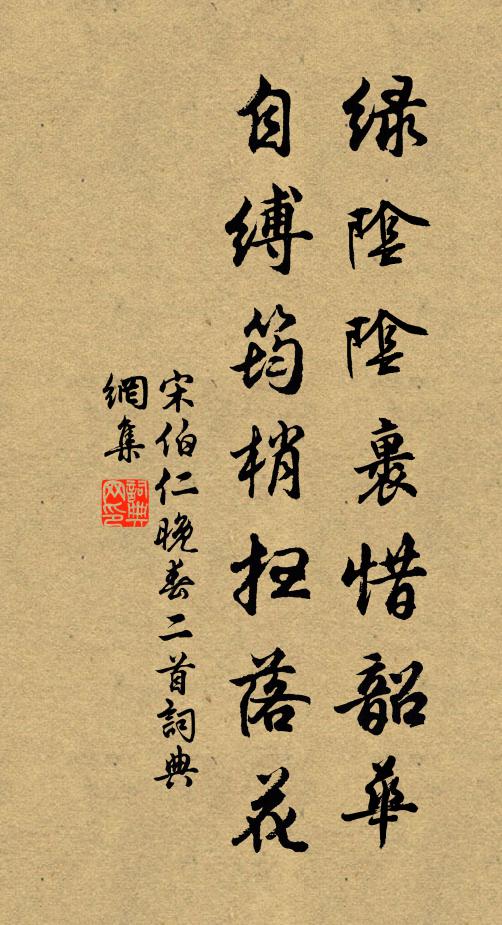 绿阴阴裹惜韶华
自缚筠梢扫落花
宋伯仁晚春二首詞典
網集
詞典
网印